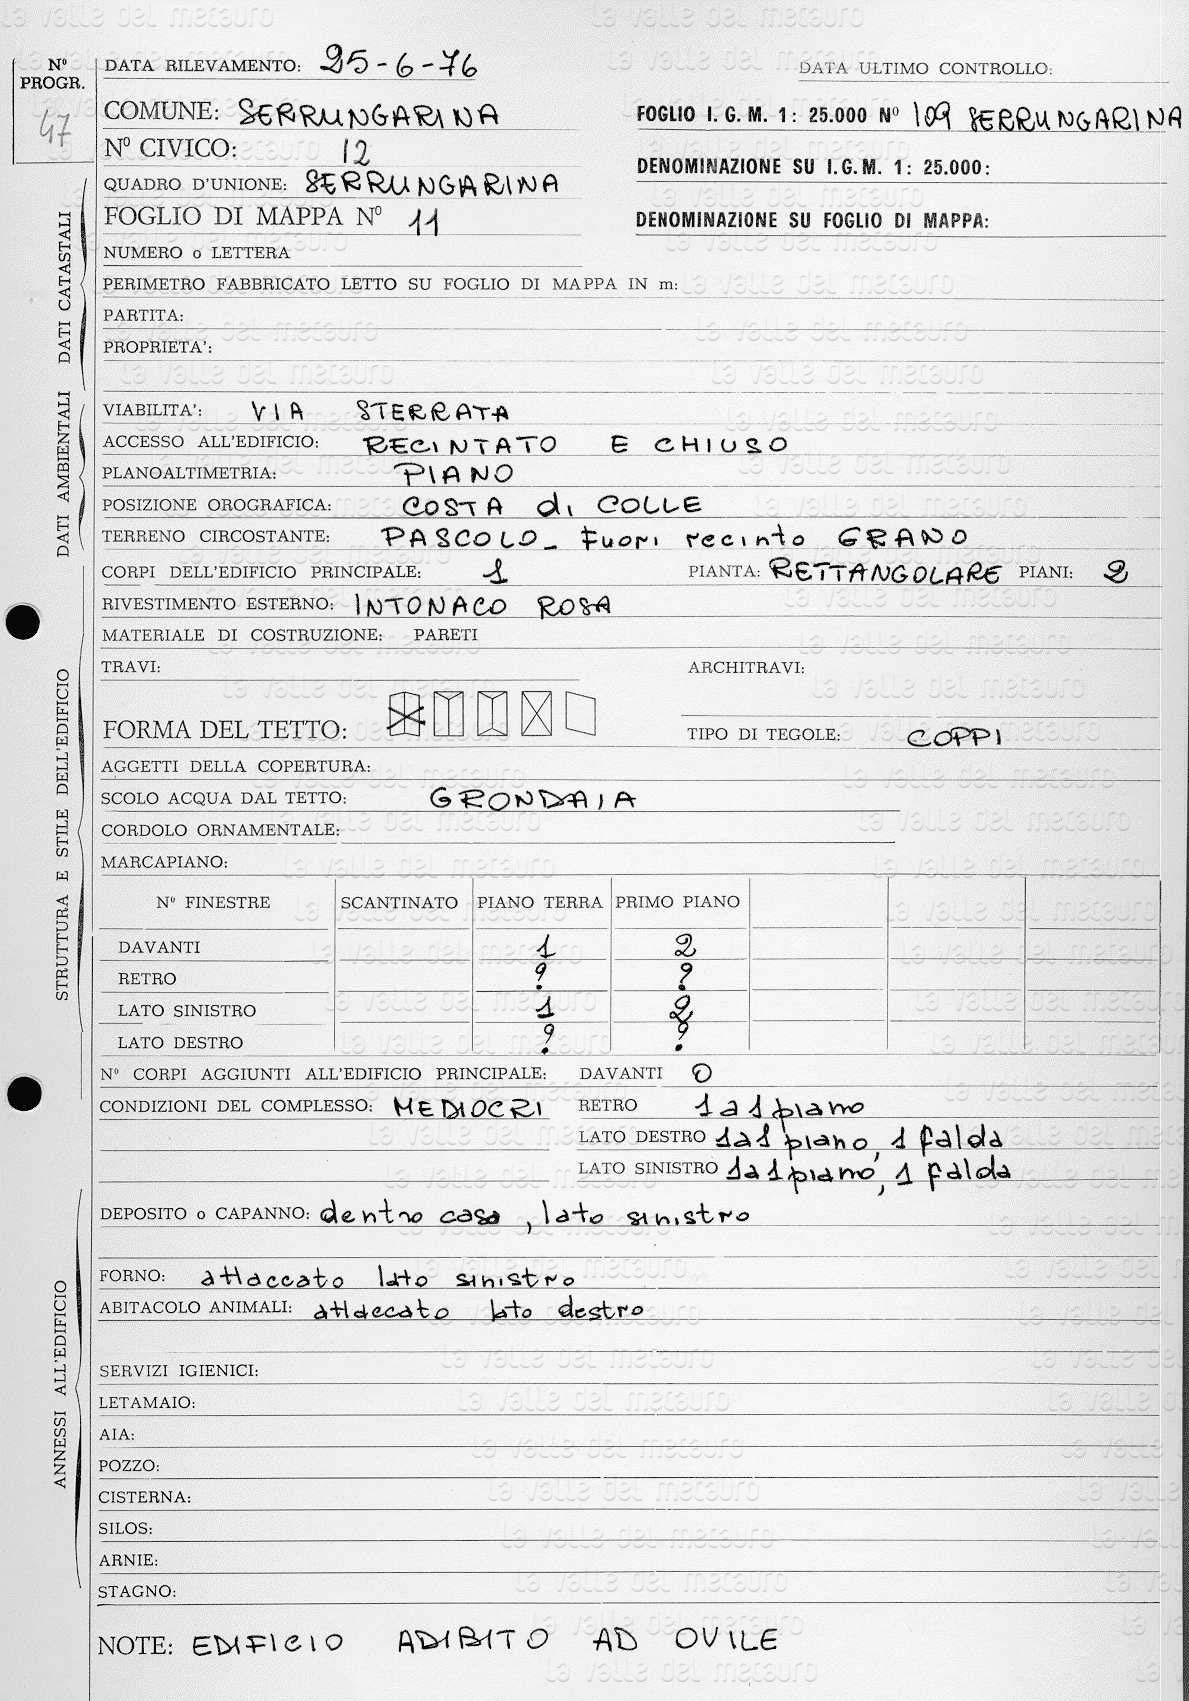 la valle del metauro
Nº PROGR. 47
DATA RILEVAMENTO: 25-6-76 DATA ULTIMO CONTROLLO:
COMUNE: SERRUNGARINA FOGLIO I. G. M. 1: 25.000 Nº 109 SERRUNGARINA
Nº CIVICO: 12 DENOMINAZIONE SU I.G.M. 1: 25.000:
QUADRO D'UNIONE: SERRUNGARINA
FOGLIO DI MAPPA Nº 11 DENOMINAZIONE SU FOGLIO DI MAPPA:
DATI CATASTALI
NUMERO o LETTERA
PERIMETRO FABBRICATO LETTO SU FOGLIO DI MAPPA IN m:
PARTITA:
PROPRIETA':
DATI AMBIENTALI
VIABILITA': VIA STERRATA
ACCESSO ALL'EDIFICIO: RECINTATO E CHIUSO
PLANOALTIMETRIA: PIANO
POSIZIONE OROGRAFICA: COSTA di COLLE
TERRENO CIRCOSTANTE: PASCOLO - fuori recinto GRANO
STRUTTURA E STILE DELL'EDIFICIO
CORPI DELL'EDIFICIO PRINCIPALE: 1 PIANTA: RETTANGOLARE PIANI: 2
RIVESTIMENTO ESTERNO: INTONACO ROSA
MATERIALE DI COSTRUZIONE: PARETI
TRAVI: ARCHITRAVI:
FORMA DEL TETTO: TIPO DI TEGOLE: COPPI
AGGETTI DELLA COPERTURA:
SCOLO ACQUA DAL TETTO: GRONDAIA
CORDOLO ORNAMENTALE:
MARCAPIANO:
Nº FINESTRE SCANTINATO PIANO TERRA PRIMO PIANO
DAVANTI 1 2
RETRO ? ?
LATO SINISTRO 1 2
LATO DESTRO ? ?
Nº CORPI AGGIUNTI ALL'EDIFICIO PRINCIPALE: DAVANTI 0
CONDIZIONI DEL COMPLESSO: MEDIOCRI RETRO 1 a 1 piano
LATO DESTRO 1 a 1 piano, 1 falda
LATO SINISTRO 1 a 1 piano, 1 falda
ANNESSI ALL'EDIFICIO
DEPOSITO o CAPANNO: dentro casa, lato sinistro
FORNO: attaccato lato sinistro
ABITACOLO ANIMALI: attaccato lato destro
SERVIZI IGIENICI:
LETAMAIO:
AIA:
POZZO:
CISTERNA:
SILOS:
ARNIE:
STAGNO:
NOTE: EDIFICIO ADIBITO AD OVILE